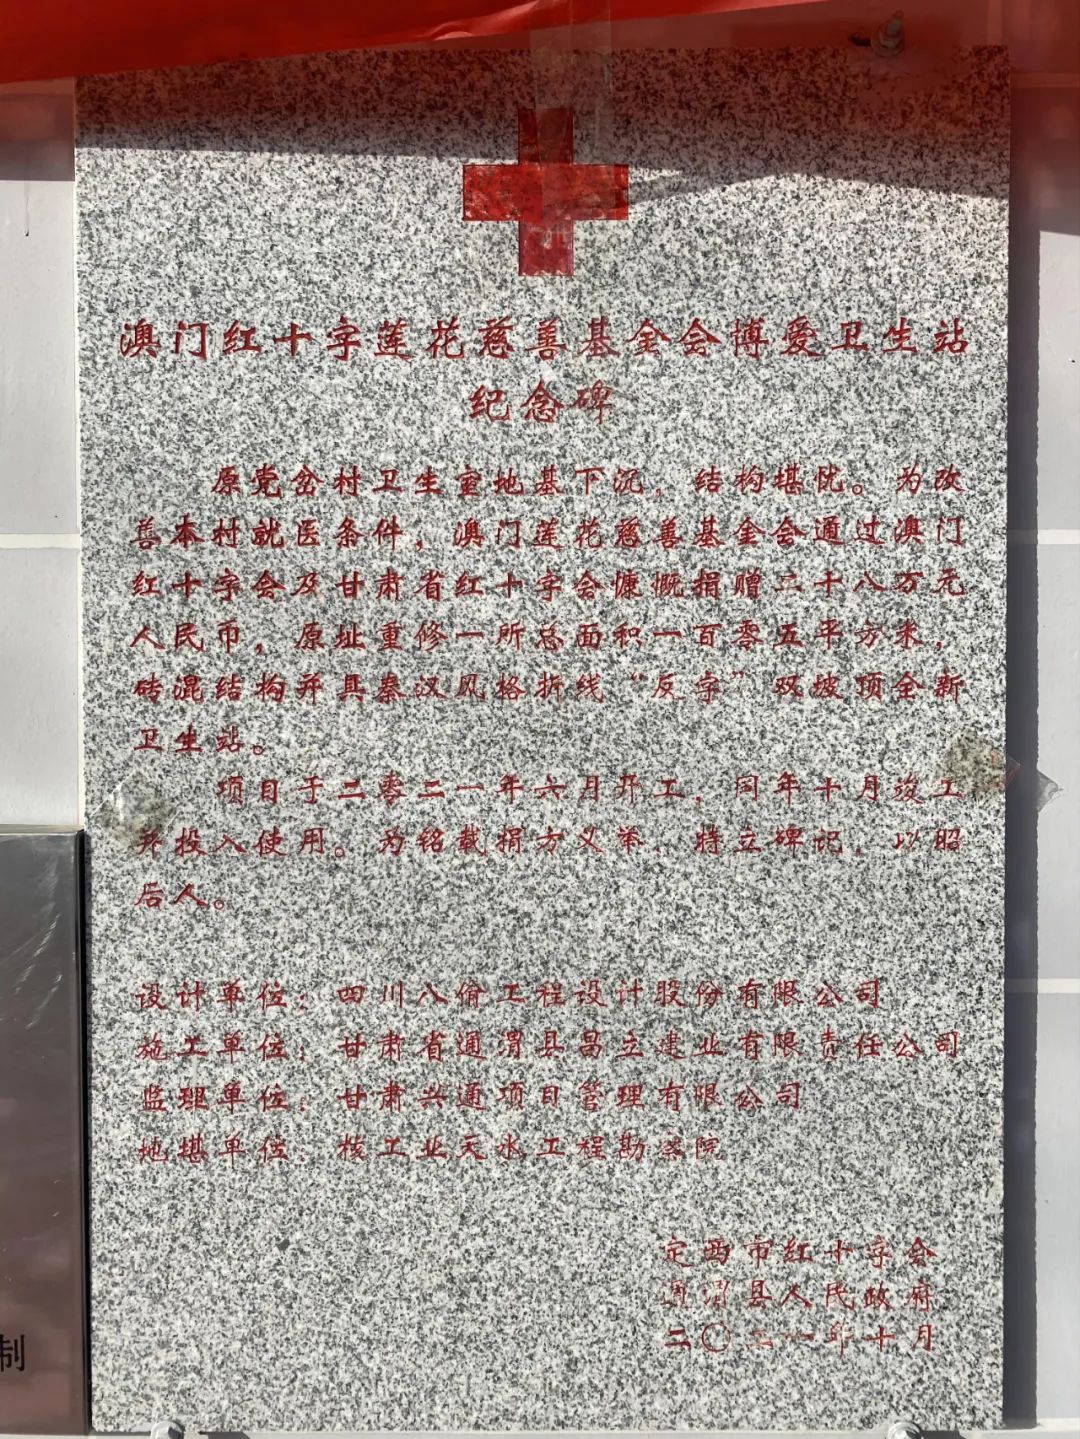 澳门红十字莲花慈善基金会博爱卫生站
纪念碑
原党岔村卫生室地基下沉，结构堪忧。为改
善本村就医条件，澳门莲花慈善基金会通过澳门
红十字会及甘肃省红十字会慷慨捐赠二十八万元
人民币，原址重修一所总面积一百零五平方米，
砖混结构并具秦汉风格折线“反字”双坡顶全新
卫生站。
项目于二零二一年六月开工，同年十月竣工
并投入使用。为铭载捐方义举，特立碑记，以昭
后人。
设计单位：四川八俏工程设计股份有限公司
施工单位：甘肃省通渭县昌立建业有限责任公司
监理单位：甘肃兴通项目管理有限公司
地堪单位：核工业天水工程勘察院
定西市红十字会
通渭县人民政府
二〇二一年十月
制